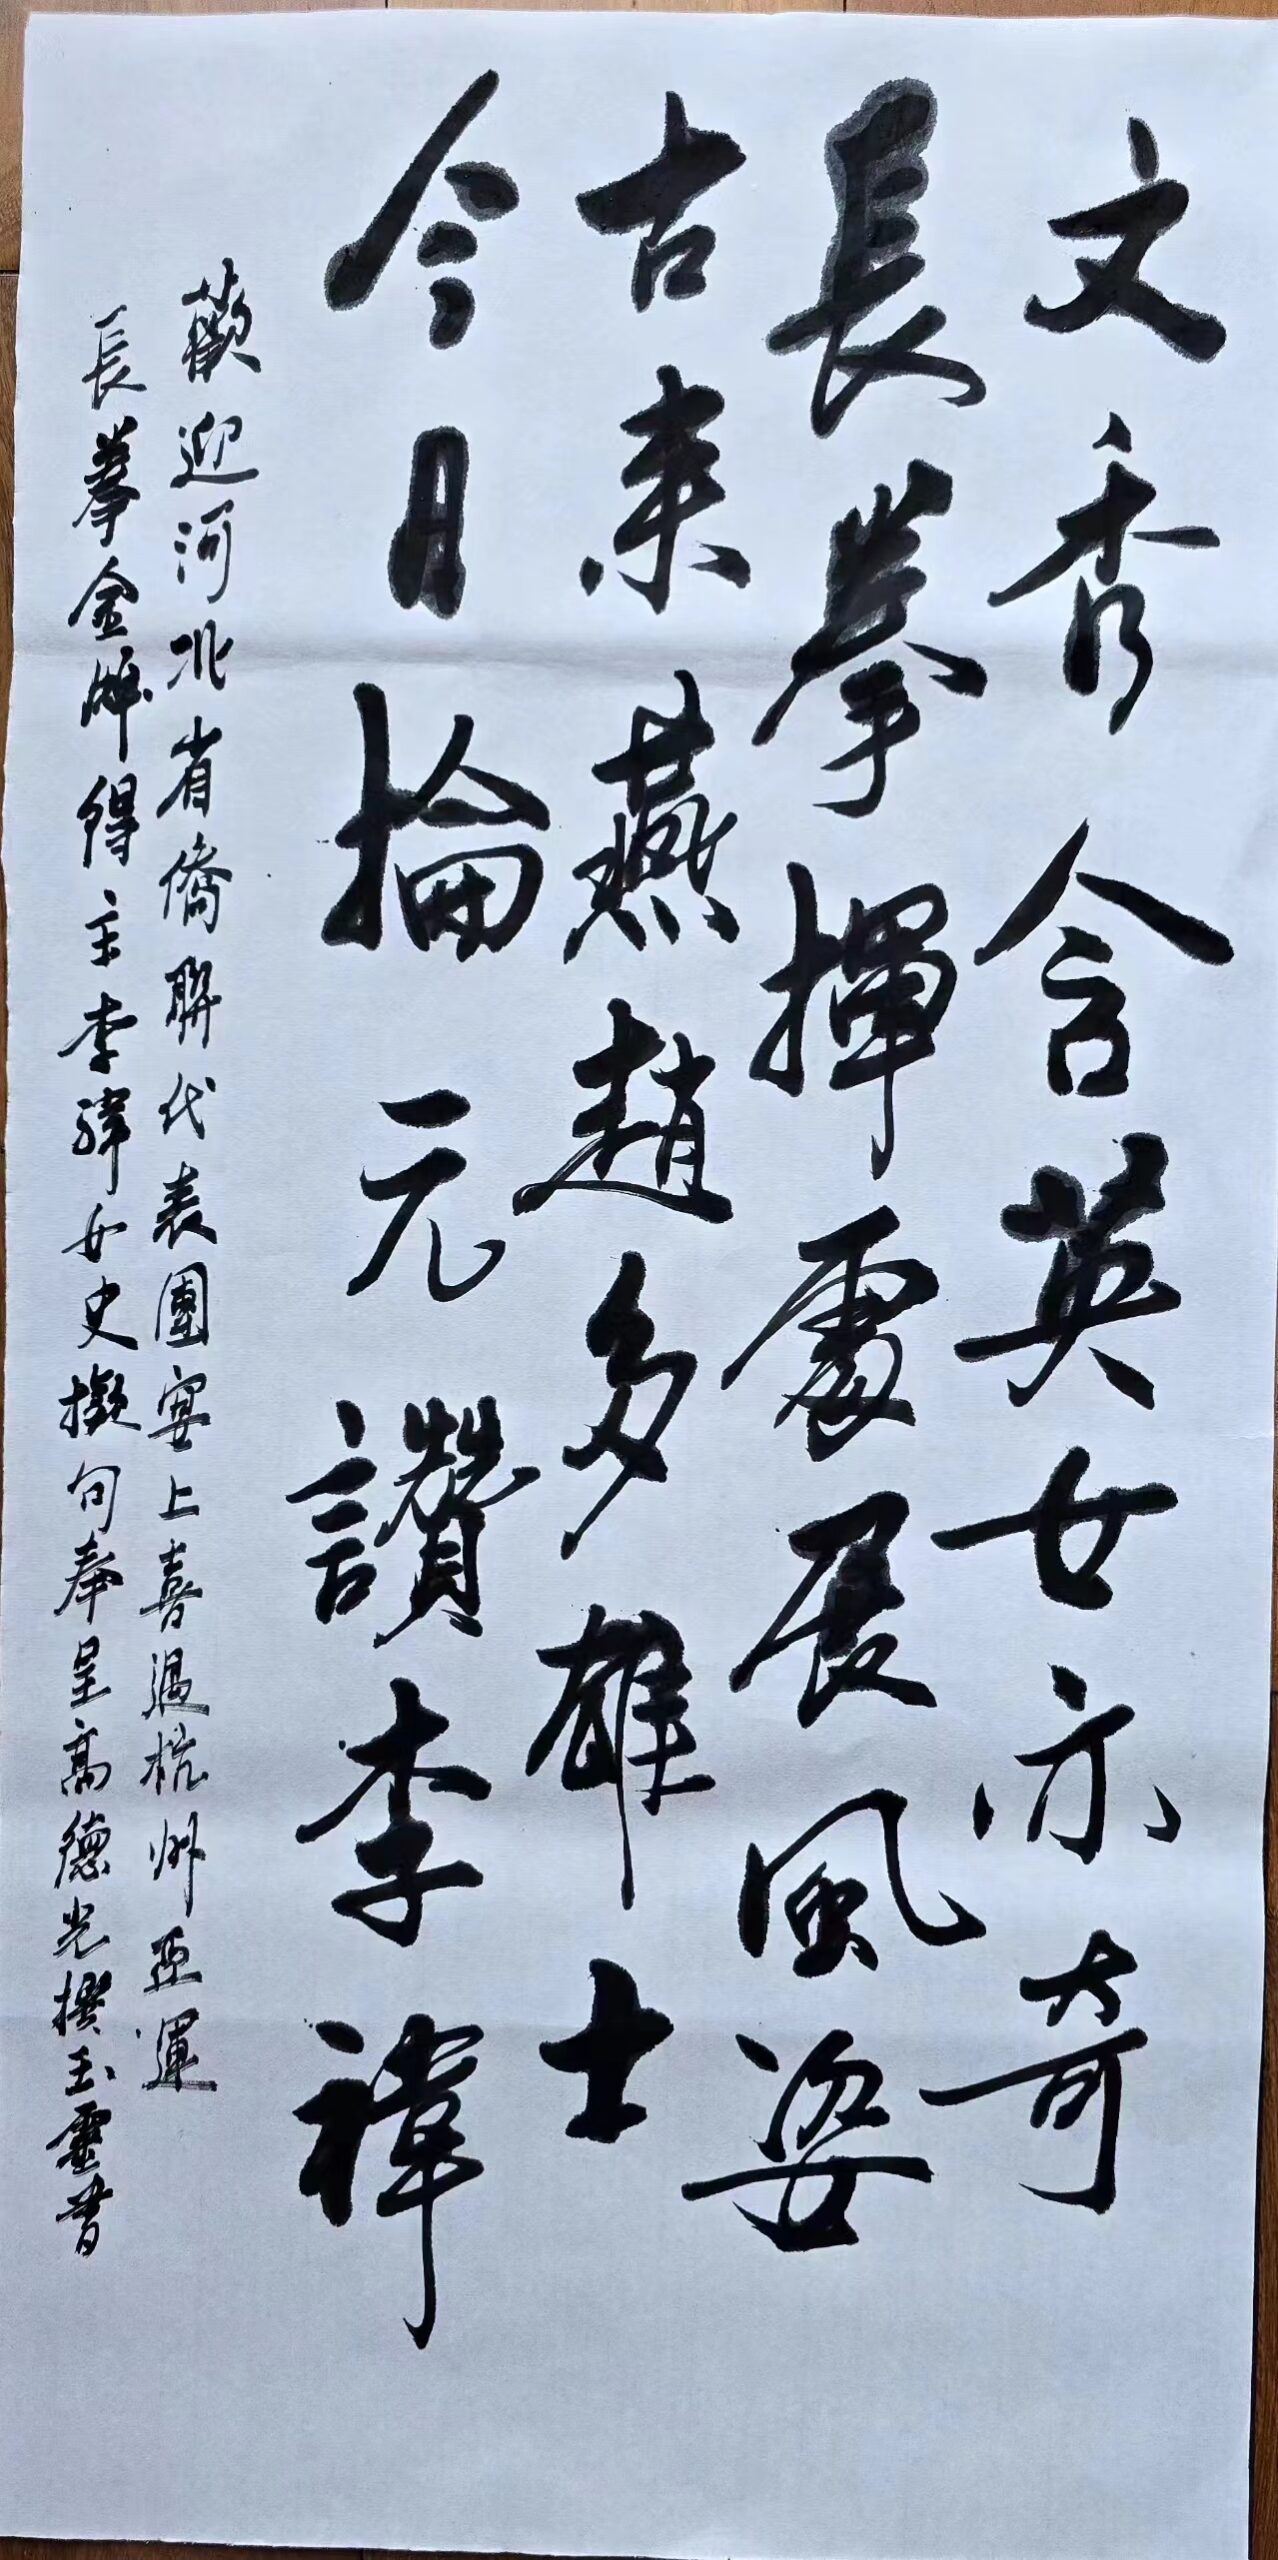 文秀含英女亦奇
長拳揮處展風姿
古来燕趙多雄士
今日掄元讚李禕
歡迎河北省僑聯代表團宴上喜遇杭州亞運
長拳金牌得主李禕女史擬句奉呈高德光撰玉靈書